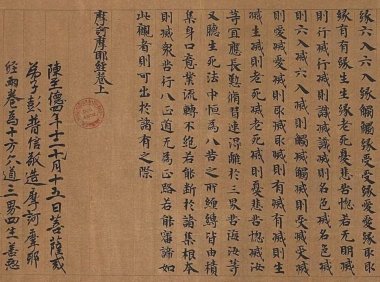 緣六入六入緣觸觸緣受受緣愛愛緣取取
緣有有緣生生緣老死憂悲苦惱若无明滅
則行滅行滅則識滅識滅則名色滅名色滅
則六入滅六入滅則觸滅觸滅則受滅受滅
則愛滅愛滅則取滅取滅則有滅有滅則生
滅生滅則老死滅老死滅則憂悲苦惱滅汝
等宜應長勤脩習速得離於三界苦海汝等
又聽生死法中恒為八苦之所纏縛皆由積
集身口意業流轉不絕若能斷於諸集根本
則滅眾苦行八正道无為正路若能審諦如
此觀者則可出於諸有之際
摩訶摩耶經卷上
陳至德四年十二月十五日菩薩戒
弟子彭普信敬造摩訶摩耶
經兩卷為十方六道三界四生善惡